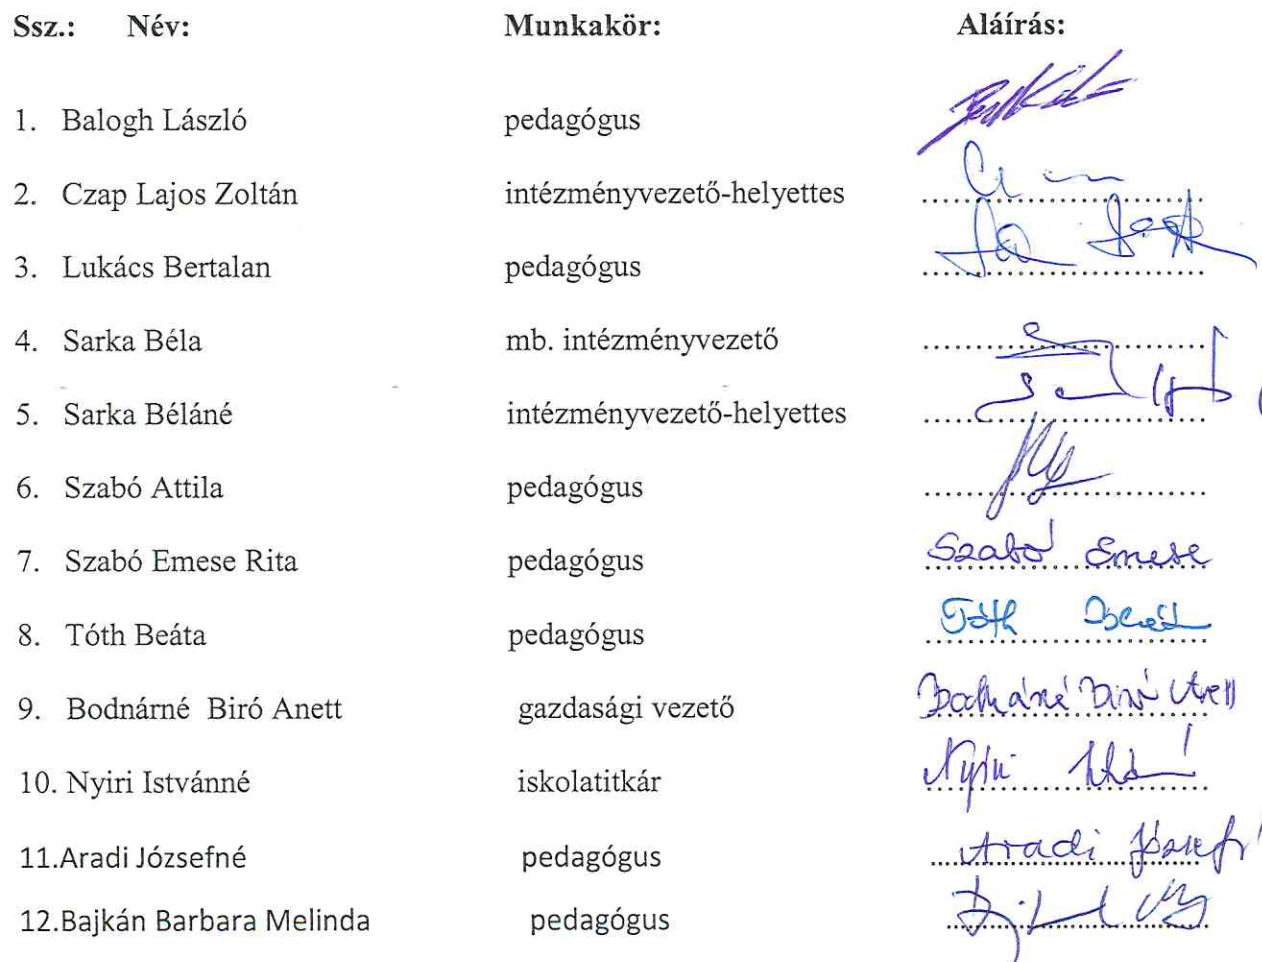 Ssz.: Név: Munkakör: Aláírás:
1. Balogh László pedagógus
2. Czap Lajos Zoltán intézményvezető-helyettes
3. Lukács Bertalan pedagógus
4. Sarka Béla mb. intézményvezető
5. Sarka Béláné intézményvezető-helyettes
6. Szabó Attila pedagógus
7. Szabó Emese Rita pedagógus Szabó Emese
8. Tóth Beáta pedagógus Tóth Beáta
9. Bodnárné Biró Anett gazdasági vezető
10. Nyiri Istvánné iskolatitkár Nyiri
11.Aradi Józsefné pedagógus Aradi
12.Bajkán Barbara Melinda pedagógus